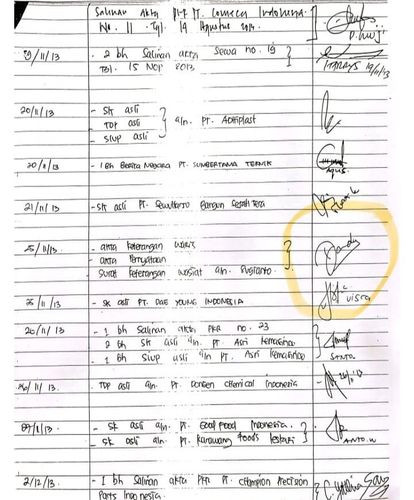 Salinan Akta PKR PT. Comeca Indonesia
No. 11. Tgl. 19 Agustus 2013.
D. Muji
19/11/13 - 2 bh Salinan akta Sewa no. 19
Tgl. 15 Nop 2013
19/11/13
20/11/13 - SK asli
TDP asli a/n. PT. Adhiplast
- SIUP asli
20/11/13 - 1 Bh Berita Negara PT. SUMBERTAMA TEKNIK
Agus
21/11/13 - SK asli PT. Bangun Sejahtera
25/11/13. - akta keterangan waris
- akta Pernyataan
Surat keterangan wasiat a/n. Sugianto
Dandy
25/11/13 - SK asli PT. DAE YOUNG INDONESIA
Visca
26/11/13 - 1 bh Salinan akta PKR no. 23
2 bh SK asli a/n PT Asri
- 1 bh SIUP asli a/n PT. Asri
SANTO
26/11/13. - TDP asli a/n. PT. Dongen Chemical Indonesia
26/11/13
- SK asli a/n. PT. Good Food Indonesia.
- SK asli a/n. PT. Karawang Foods Lestari
ANTON
2/12/13 - 1 bh Salinan akta PKR PT. Champion Precision
Parts Indonesia.
Cynthia